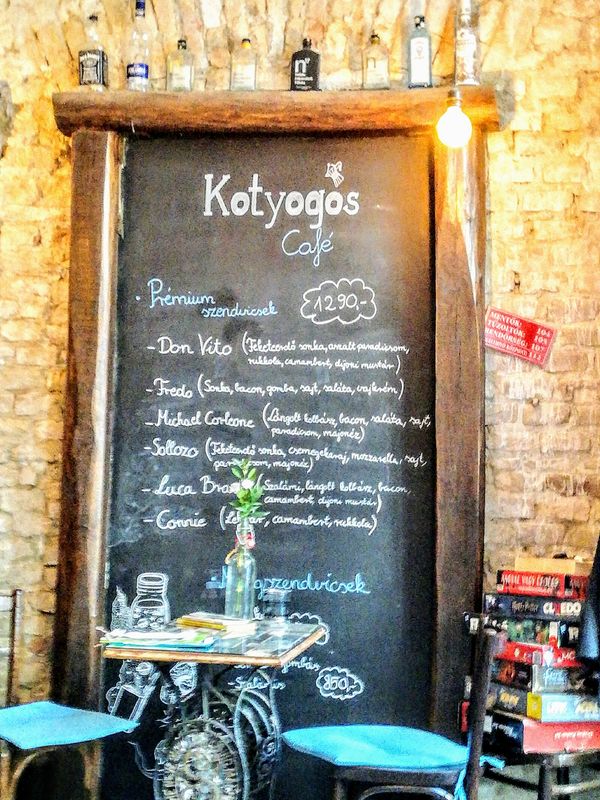 Kotyogós
Café
Prémium
szendvicsek
1290,-
- Don Vito (Feketeerdő sonka, aszalt paradicsom,
rukkola, camambert, dijoni mustár)
- Fredo (Sonka, bacon, gomba, sajt, saláta, vajkrém)
- Michael Corleone (Lángolt kolbász, bacon, saláta, sajt,
paradicsom, majonéz)
- Sollozo (Feketeerdő sonka, csemegekaraj, mozzarella, sajt,
majonéz)
- Luca (Szalámi, lángolt kolbász, bacon,
camambert, dijoni mustár)
- Connie (camambert, rukkola)
850,-
MENTŐK: 104
TŰZOLTÓK: 105
RENDŐRSÉG: 107
112
CLUEDO